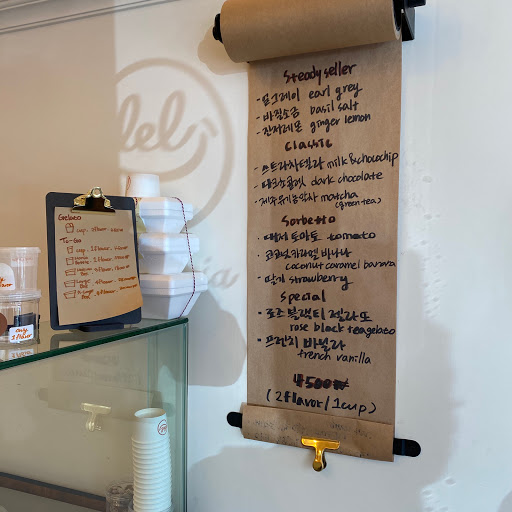 Steady seller
- 얼그레이 earl grey
- 바질소금 basil salt
- 진저레몬 ginger lemon
Classic
- 스트라차텔라 milk & chocochip
- 다크초콜릿 dark chocolate
- 제주유기농말차 matcha
(green tea)
Sorbetto
토마토 tomato
- 코코넛카라멜 바나나
coconut caramel banana
- 딸기 strawberry
Special
- 로즈블랙티 젤라또
rose black tea gelato
- 프렌치 바닐라
french vanilla
4500₩
(2flavor/1cup)
Gelato
cup
To-Go
only
1 flavor